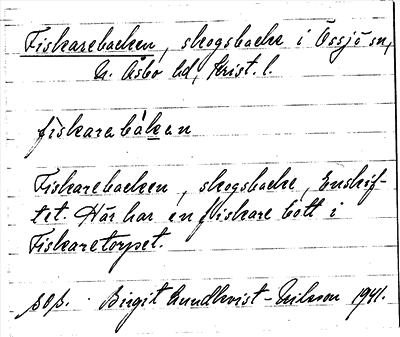 Fiskarebacken, skogsbacke i Össjö sn,
N. Åsbo hd, Krist. l.
fiskarebakan
Fiskarebacken, skogsbacke, Enskif-
tet. Här har en fiskare bott i
Fiskaretorpet.
Birgit Lundkvist-Nilsson 1941.